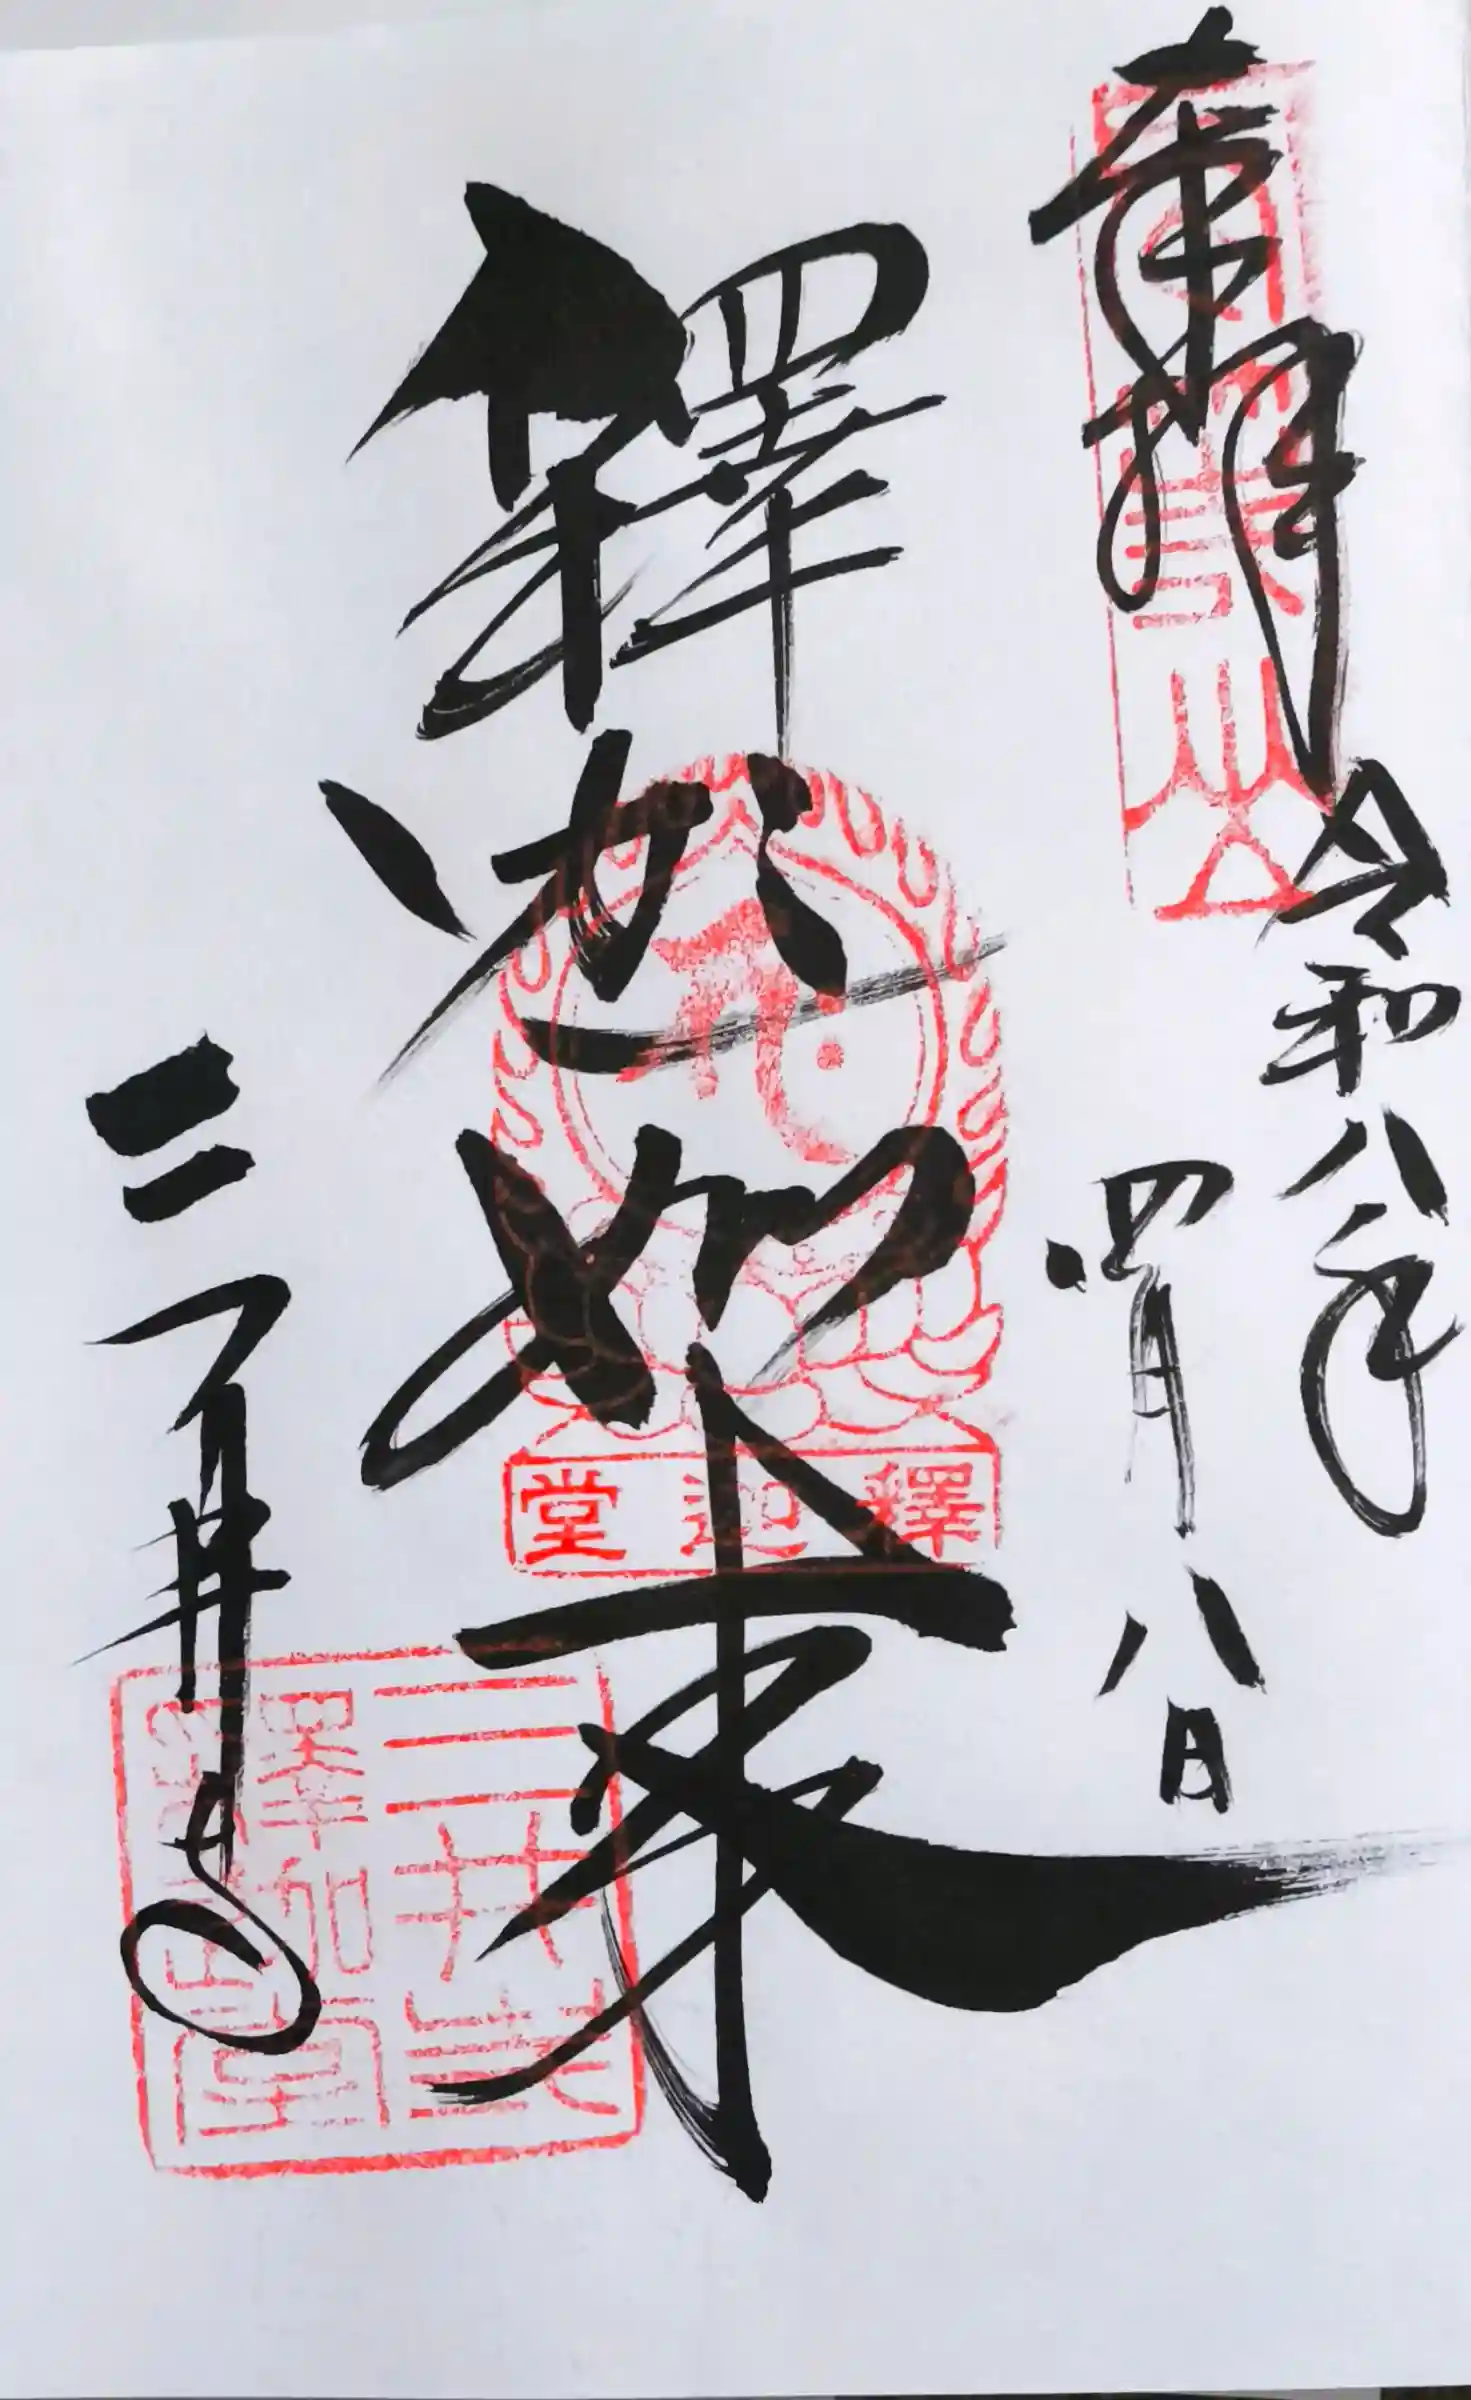 奉拝
令和八年
四月八日
釋迦如来
釋迦堂
三井寺
三井寺
釋迦堂